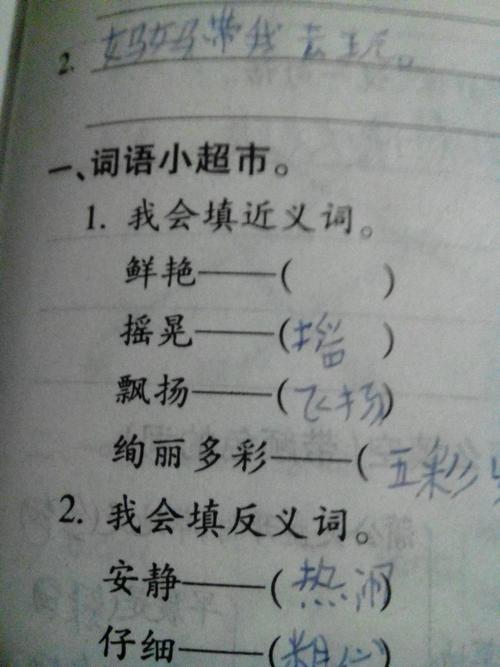 2. 妈妈带我去
一、词语小超市。
1. 我会填近义词。
鲜艳——( )
摇晃——( )
飘扬——(飞扬)
绚丽多彩——(五彩
2. 我会填反义词。
安静——(热闹)
仔细——(粗心)